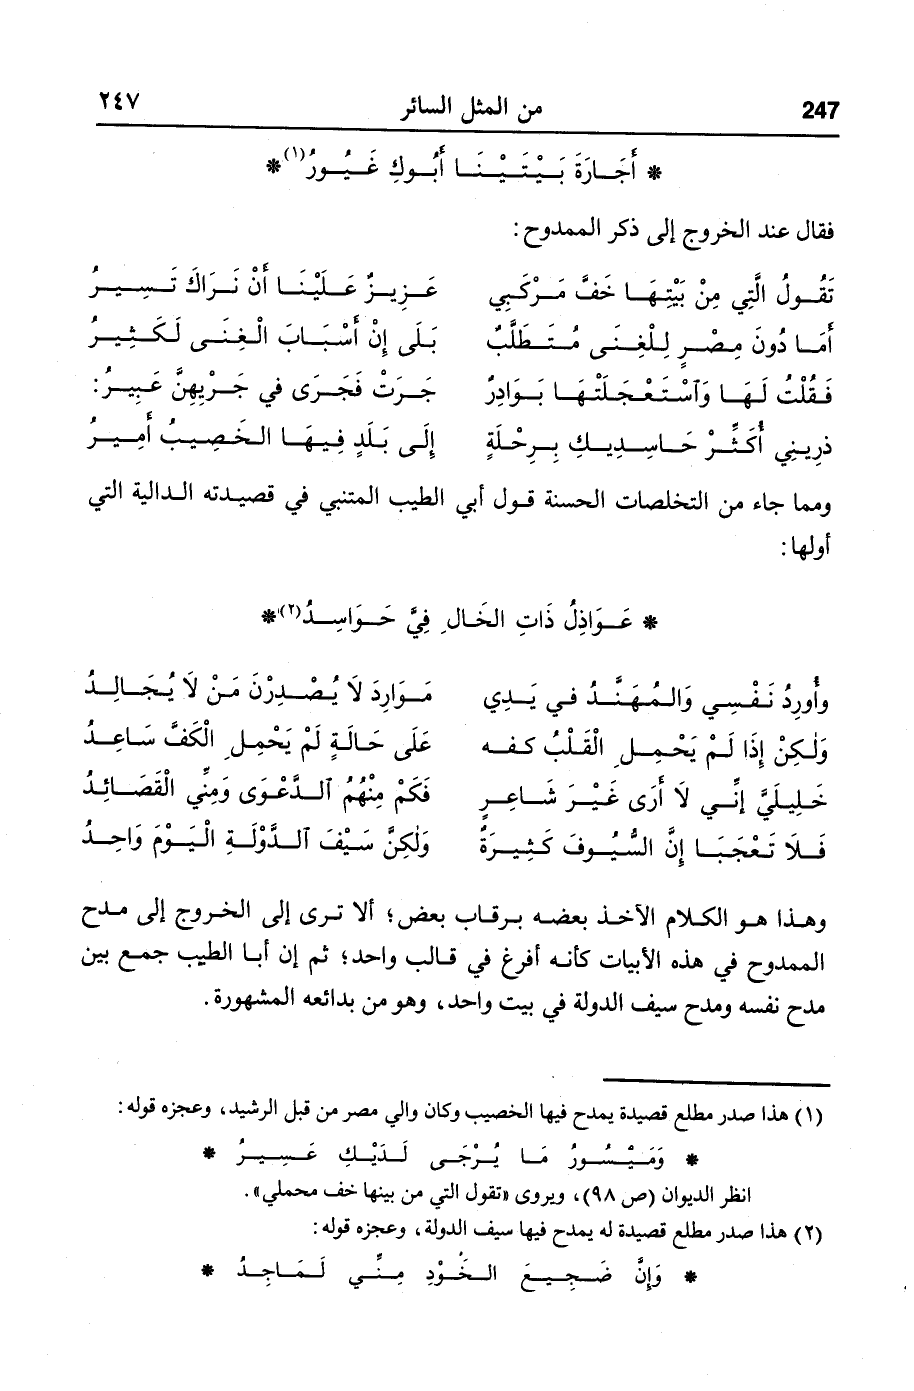 247 من المثل السائر ٢٤٧
* أَجَارَةَ بَيْتَيْنَا أَبُوكِ غَيُورُ(١) *
فقال عند الخروج إلى ذكر الممدوح:
تَقُولُ الَّتِي مِنْ بَيْتِهَا خَفَّ مَرْكَبِي عَزِيزٌ عَلَيْنَا أَنْ نَرَاكَ تَسِيرُ
أَمَا دُونَ مِصْرٍ لِلْغِنَى مُتَطَلَّبٌ بَلَى إِنْ أَسْبَابَ الْغِنَى لَكَثِيرُ
فَقُلْتُ لَهَا وَاسْتَعْجَلَتْهَا بَوَادِرٌ جَرَتْ فَجَرَى فِي جَرْيِهِنَّ عَبِيرُ:
ذرِينِي أُكَثِّرْ حَاسِدِيكِ بِرِحْلَةٍ إِلَى بَلَدٍ فِيهَا الخَصِيبُ أَمِيرُ
ومما جاء من التخلصات الحسنة قول أبي الطيب المتنبي في قصيدته الدالية التي
أولها:
* عَوَاذِلُ ذَاتِ الخَالِ فِيَّ حَوَاسِدُ(٢) *
وأُورِدُ نَفْسِي وَالمُهَنَّدُ في يَدِي مَوَارِدَ لَا يُصْدِرْنَ مَنْ لَا يُجَالِدُ
وَلٰكِنْ إِذَا لَمْ يَحْمِلِ الْقَلْبُ كفه عَلَى حَالَةٍ لَمْ يَحْمِلِ الْكَفَّ سَاعِدُ
خَلِيلَيَّ إِنِّي لَا أَرَى غَيْرَ شَاعِرٍ فَكَمْ مِنْهُمُ الدَّعْوَى وَمِنِّي الْقَصَائِدُ
فَلَا تَعْجَبَا إِنَّ السُّيُوفَ كَثِيرَةٌ وَلٰكِنَّ سَيْفَ الدَّوْلَةِ الْيَوْمَ وَاحِدُ
وهذا هو الكلام الآخذ بعضه برقاب بعض؛ ألا ترى إلى الخروج إلى مدح
الممدوح في هذه الأبيات كأنه أفرغ في قالب واحد؛ ثم إن أبا الطيب جمع بين
مدح نفسه ومدح سيف الدولة في بيت واحد، وهو من بدائعه المشهورة.
(١) هذا صدر مطلع قصيدة يمدح فيها الخصيب وكان والي مصر من قبل الرشيد، وعجزه قوله:
* وَمَيْسُورُ مَا يُرْجَى لَدَيْكِ عَسِيرُ *
انظر الديوان (ص ٩٨)، ويروى «تقول التي من بينها خف محملي».
(٢) هذا صدر مطلع قصيدة له يمدح فيها سيف الدولة، وعجزه قوله:
* وَإِنَّ ضَجِيعَ الخَوْدِ مِنِّي لَمَاجِدُ *